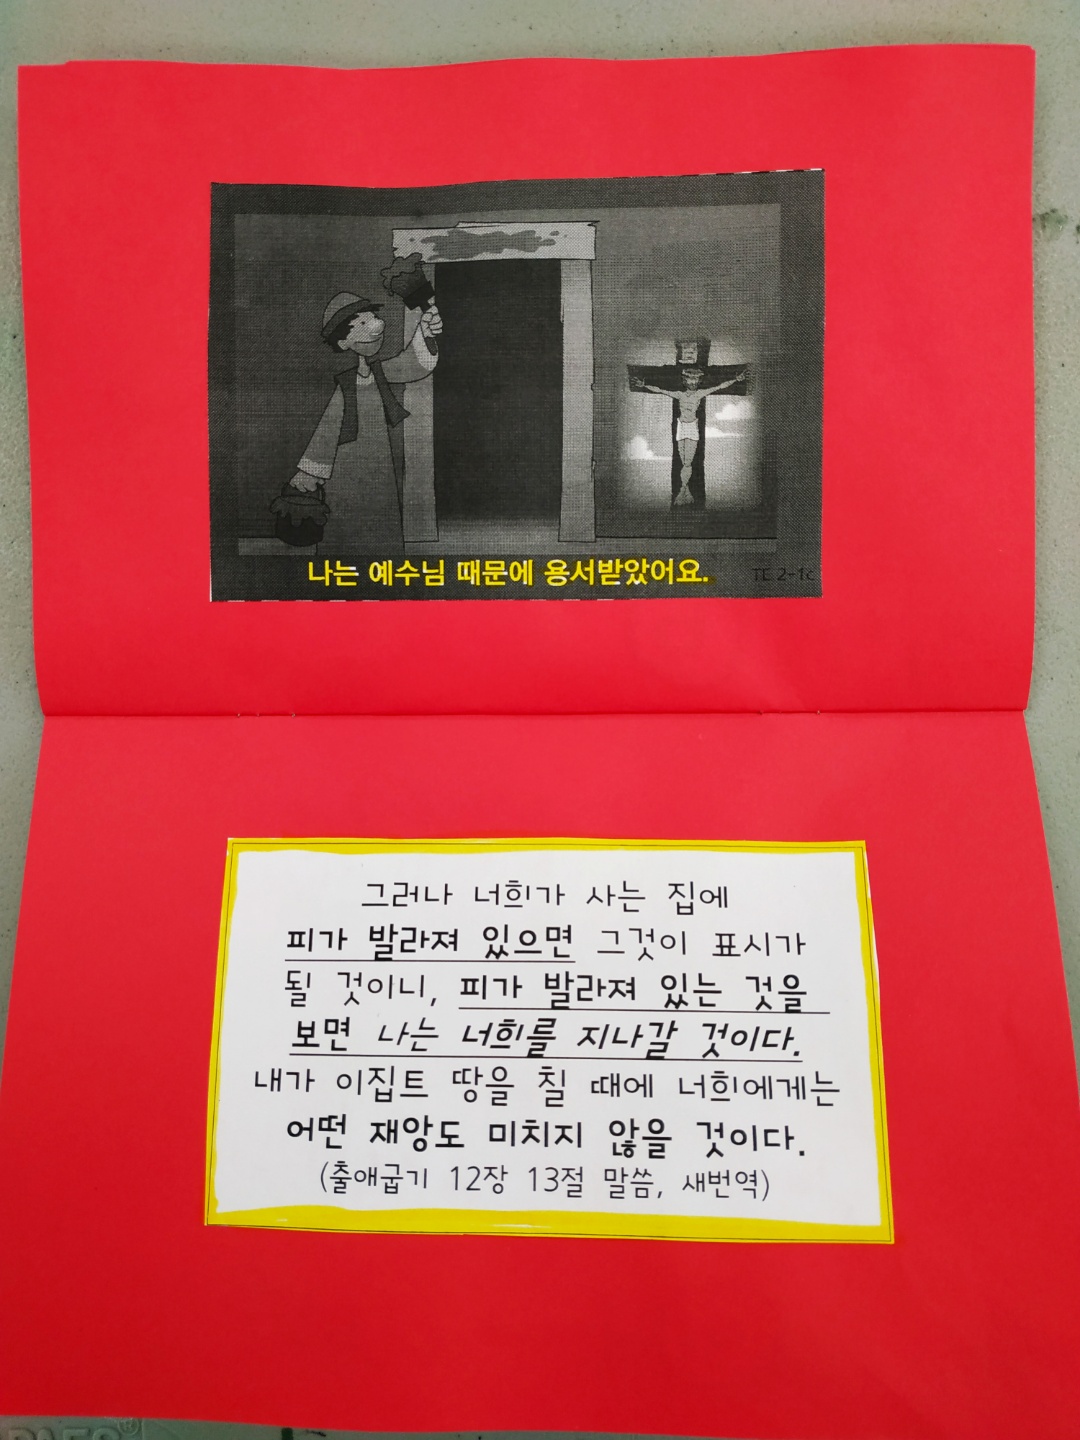 나는 예수님 때문에 용서받았어요.
TE 2-1c
그러나 너희가 사는 집에
피가 발라져 있으면 그것이 표시가
될 것이니, 피가 발라져 있는 것을
보면 나는 너희를 지나갈 것이다.
내가 이집트 땅을 칠 때에 너희에게는
어떤 재앙도 미치지 않을 것이다.
(출애굽기 12장 13절 말씀, 새번역)